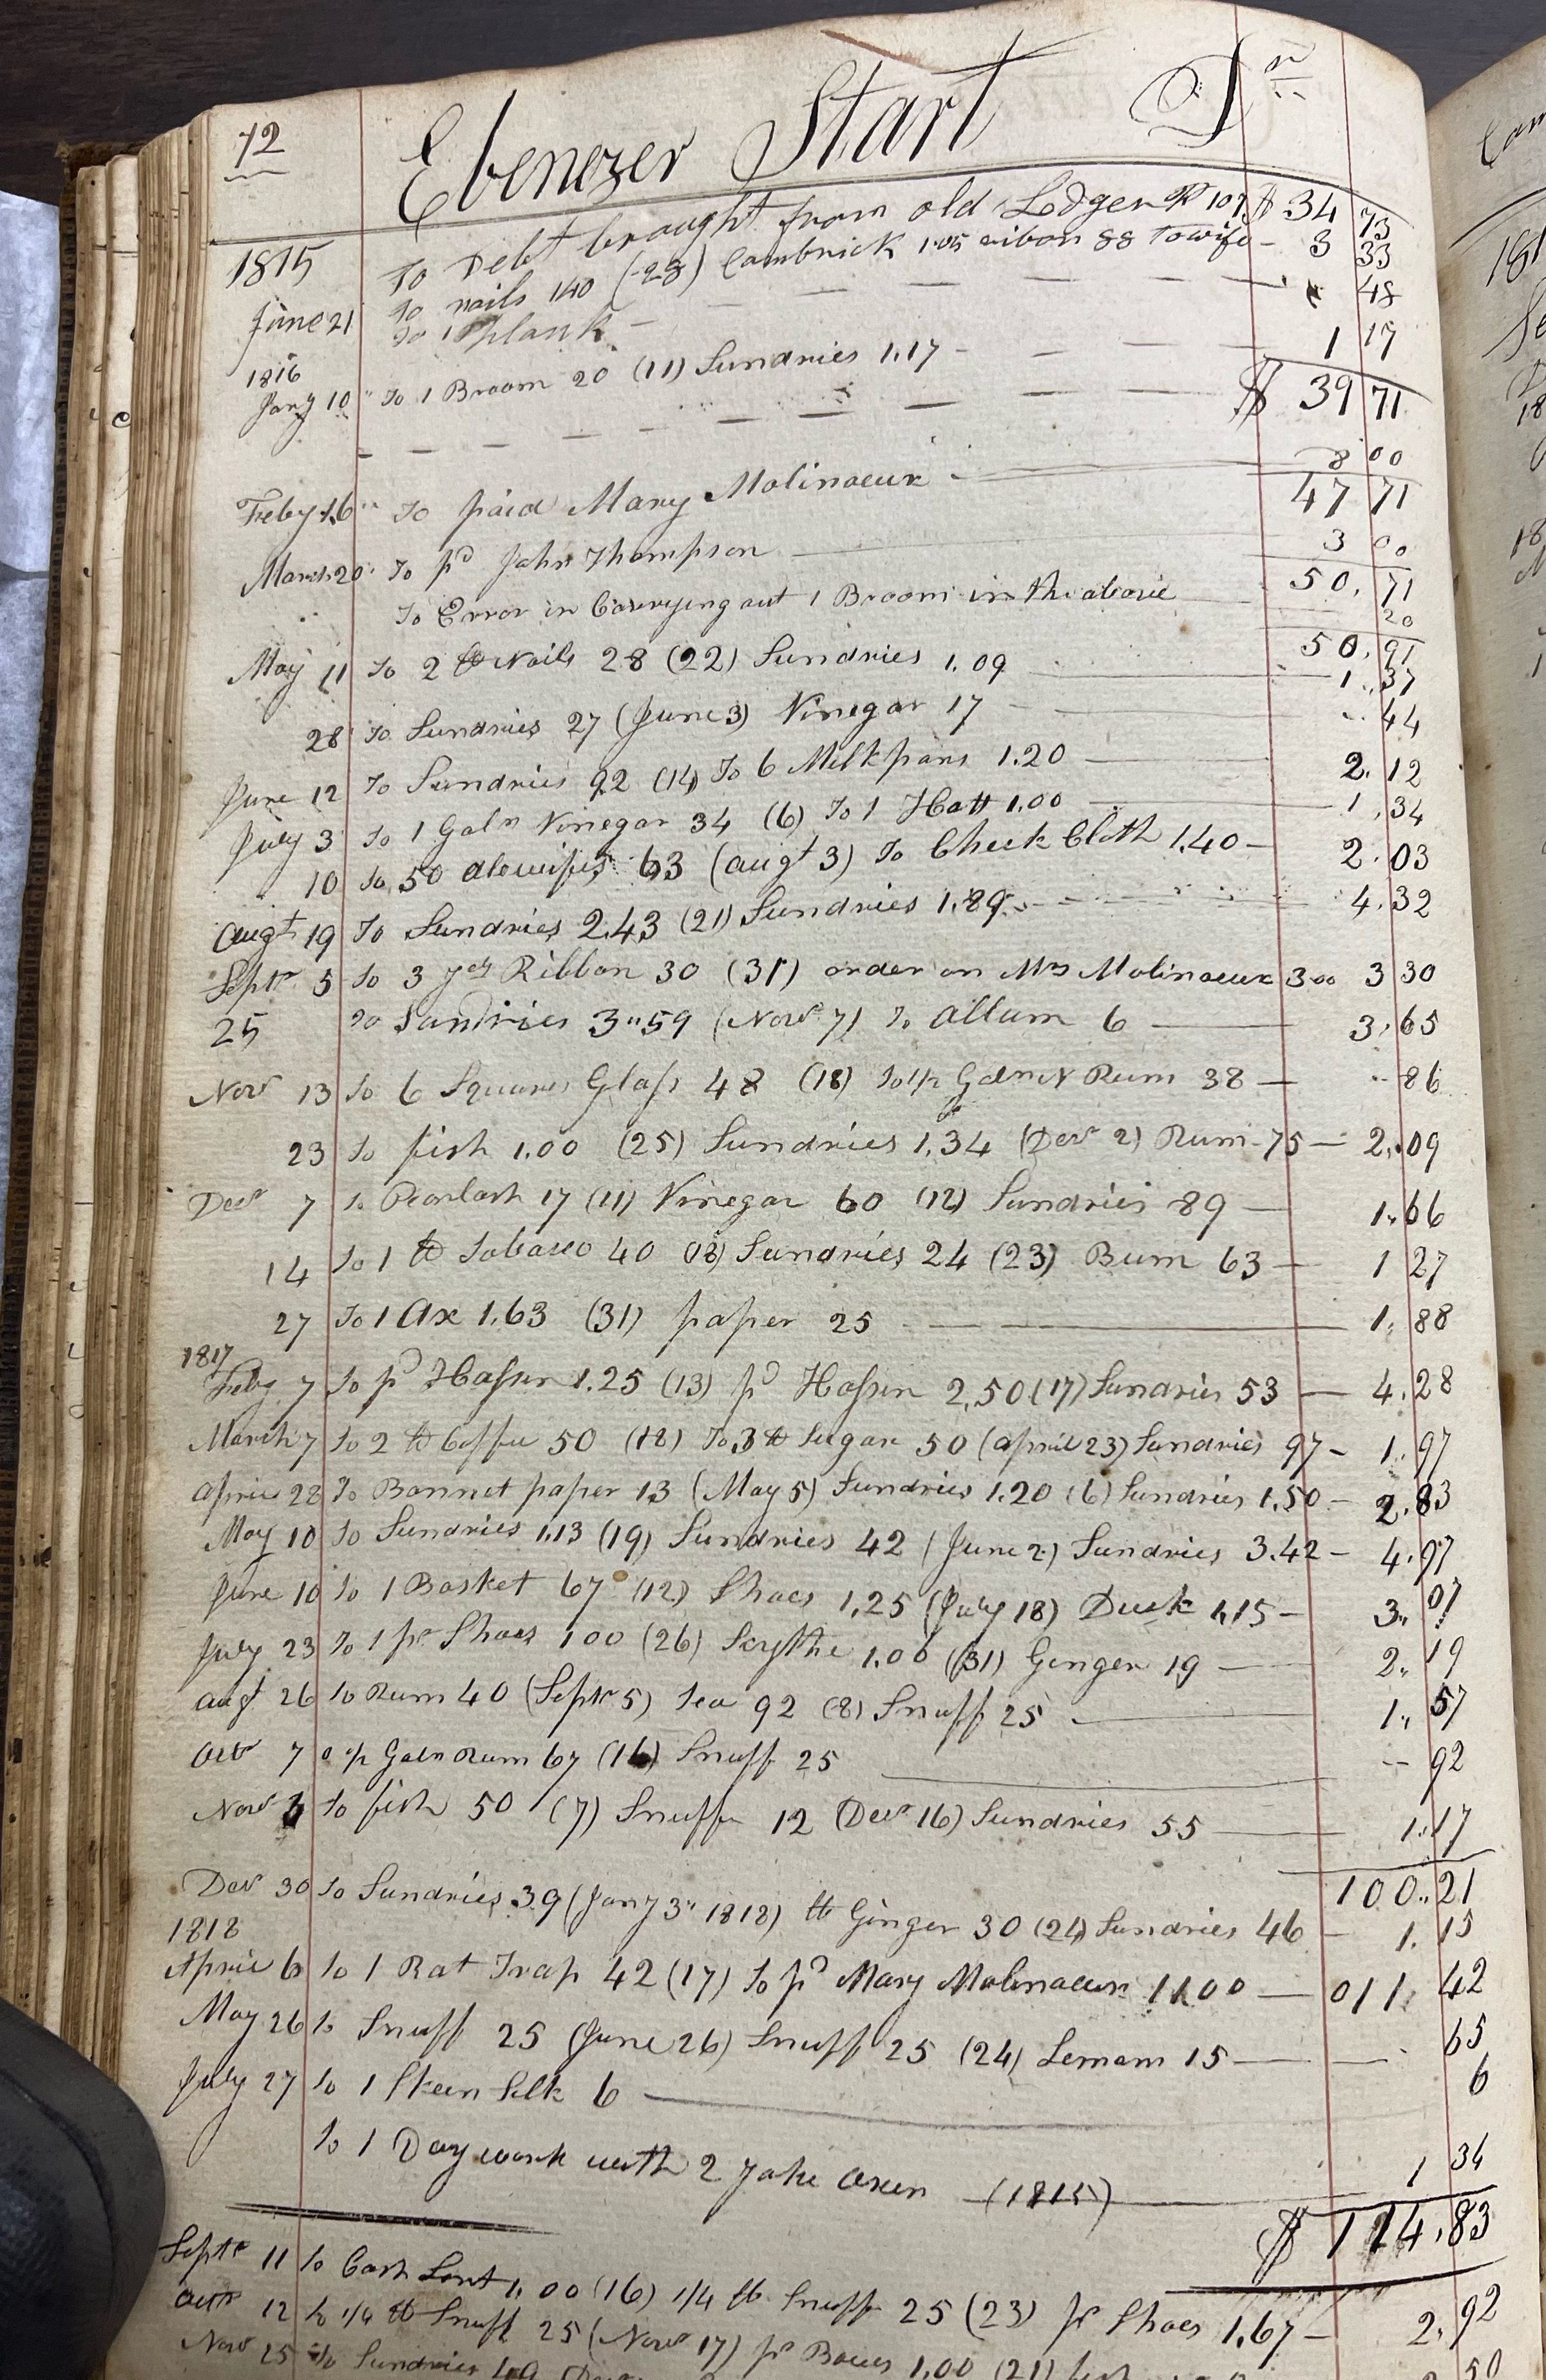 72
Ebenezer Start Dr
1815 To Debt brought from old Ledger P 107 $ 34 73
June 21 To nails 140 (28) Cambrick 1.05 ribon 88 To wife - 3 33
To 1 plank - 48
1816
Jany 10 To 1 Broom 20 (11) Sundries 1.17 - 1 17
$ 39 71
Feby 16 To paid Mary Molinaeux 8 00
47 71
March 20 To pd John Thompson 3 00
50. 71
To Error in Carrying out 1 Broom in the above 20
50. 91
May 11 To 2 lb Nails 28 (22) Sundries 1.09 1. 37
28 To Sundries 27 (June 3) Vinegar 17 44
June 12 To Sundries 92 (14) To 6 Milk pans 1.20 2. 12
July 3 To 1 Galn Vinegar 34 (6) To 1 Hatt 1.00 1. 34
10 To 50 63 (augt 3) To Check Cloth 1.40 - 2. 03
Augt 19 To Sundries 2.43 (21) Sundries 1.89 4. 32
Sept 5 To 3 yds Ribbon 30 (31) order on Mrs Molinaeux 3 00 3 30
25 To Sundries 3"59 (Novr 7) To Allum 6 3. 65
Nov 13 To 6 Squares Glass 48 (18) To 1/2 Galn N Rum 38 - 86
23 To fish 1.00 (25) Sundries 1.34 (Decr 2) Rum 75 - 2. 09
Decr 7 To Pearlash 17 (11) Vinegar 60 (12) Sundries 89 - 1. 66
14 To 1 lb Tobacco 40 (18) Sundries 24 (23) Rum 63 - 1 27
27 To 1 Ax 1.63 (31) paper 25 1. 88
1817
Feby 7 To pd Hassen 1.25 (13) pd Hassen 2.50 (17) Sundries 53 - 4. 28
March 7 To 2 lb Coffee 50 (18) To 3 lb Sugar 50 (april 23) Sundries 97 - 1. 97
April 28 To Bonnet paper 13 (May 5) Sundries 1.20 (6) Sundries 1.50 - 2. 83
May 10 To Sundries 1.13 (19) Sundries 42 (June 2) Sundries 3.42 - 4. 97
June 10 To 1 Basket 67 (12) Shoes 1.25 (July 18) Duck 1.15 - 3. 07
July 23 To 1 pr Shoes 1 00 (26) Scythe 1.00 (31) Ginger 19 2. 19
augt 26 To Rum 40 (Septr 5) Tea 92 (8) Snuff 25 1. 57
Octr 7 To 1/2 Galn Rum 67 (16) Snuff 25 92
Novr 6 To fish 50 (7) Snuff 12 (Decr 16) Sundries 55 1. 17
100. 21
Decr 30 To Sundries 39 (Jany 3 1818) lb Ginger 30 (24) Sundries 46 - 1. 15
1818
April 6 To 1 Rat Trap 42 (17) To pd Mary Molinaeux 11.00 011 42
May 26 To Snuff 25 (June 26) Snuff 25 (24) Lemon 15 65
July 27 To 1 Skein Silk 6 6
To 1 Day work with 2 yoke Oxen (1815) 1 34
$ 114. 83
Septr 11 To Cash Lent 1.00 (16) 1/4 lb Snuff 25 (23) pr Shoes 1.67 - 2. 92
Octr 12 To 1/4 lb Snuff 25 (Novr 17) pr 1.00 (21)
Novr 25 To Sundries 50